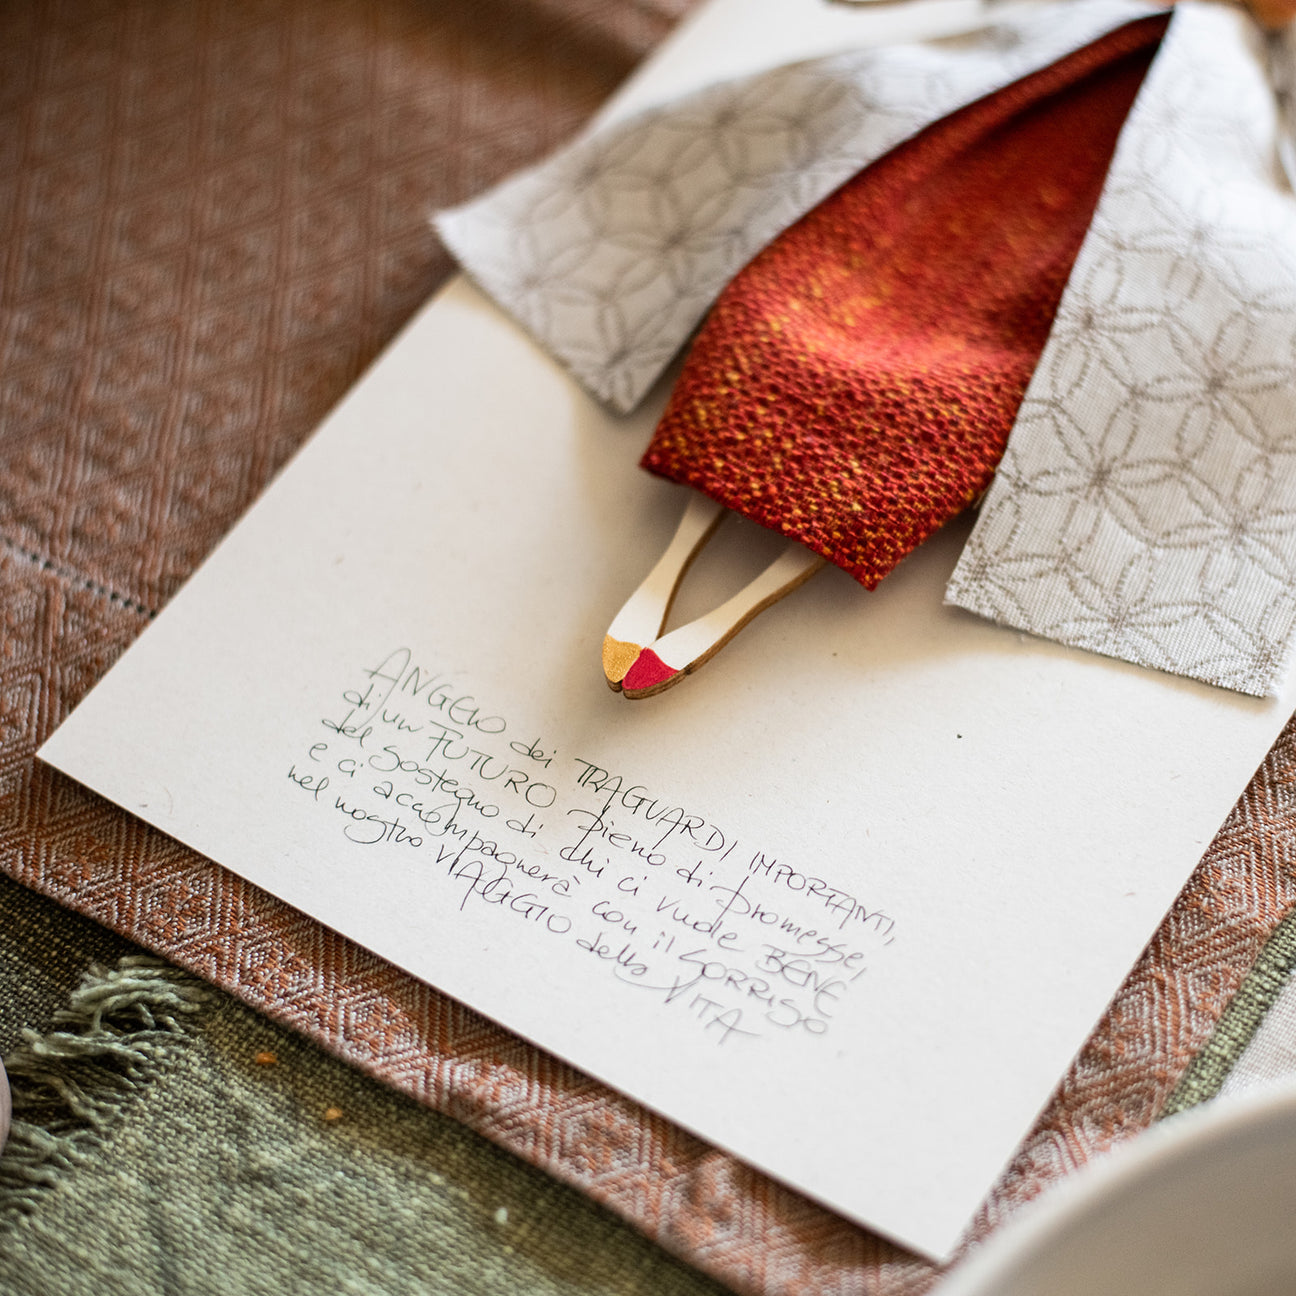 ANGELO dei TRAGUARDI IMPORTANTI,
di un FUTURO pieno di promesse,
del sostegno di chi ci vuole BENE
e ci accompagnerà con il SORRISO
nel nostro VIAGGIO della VITA